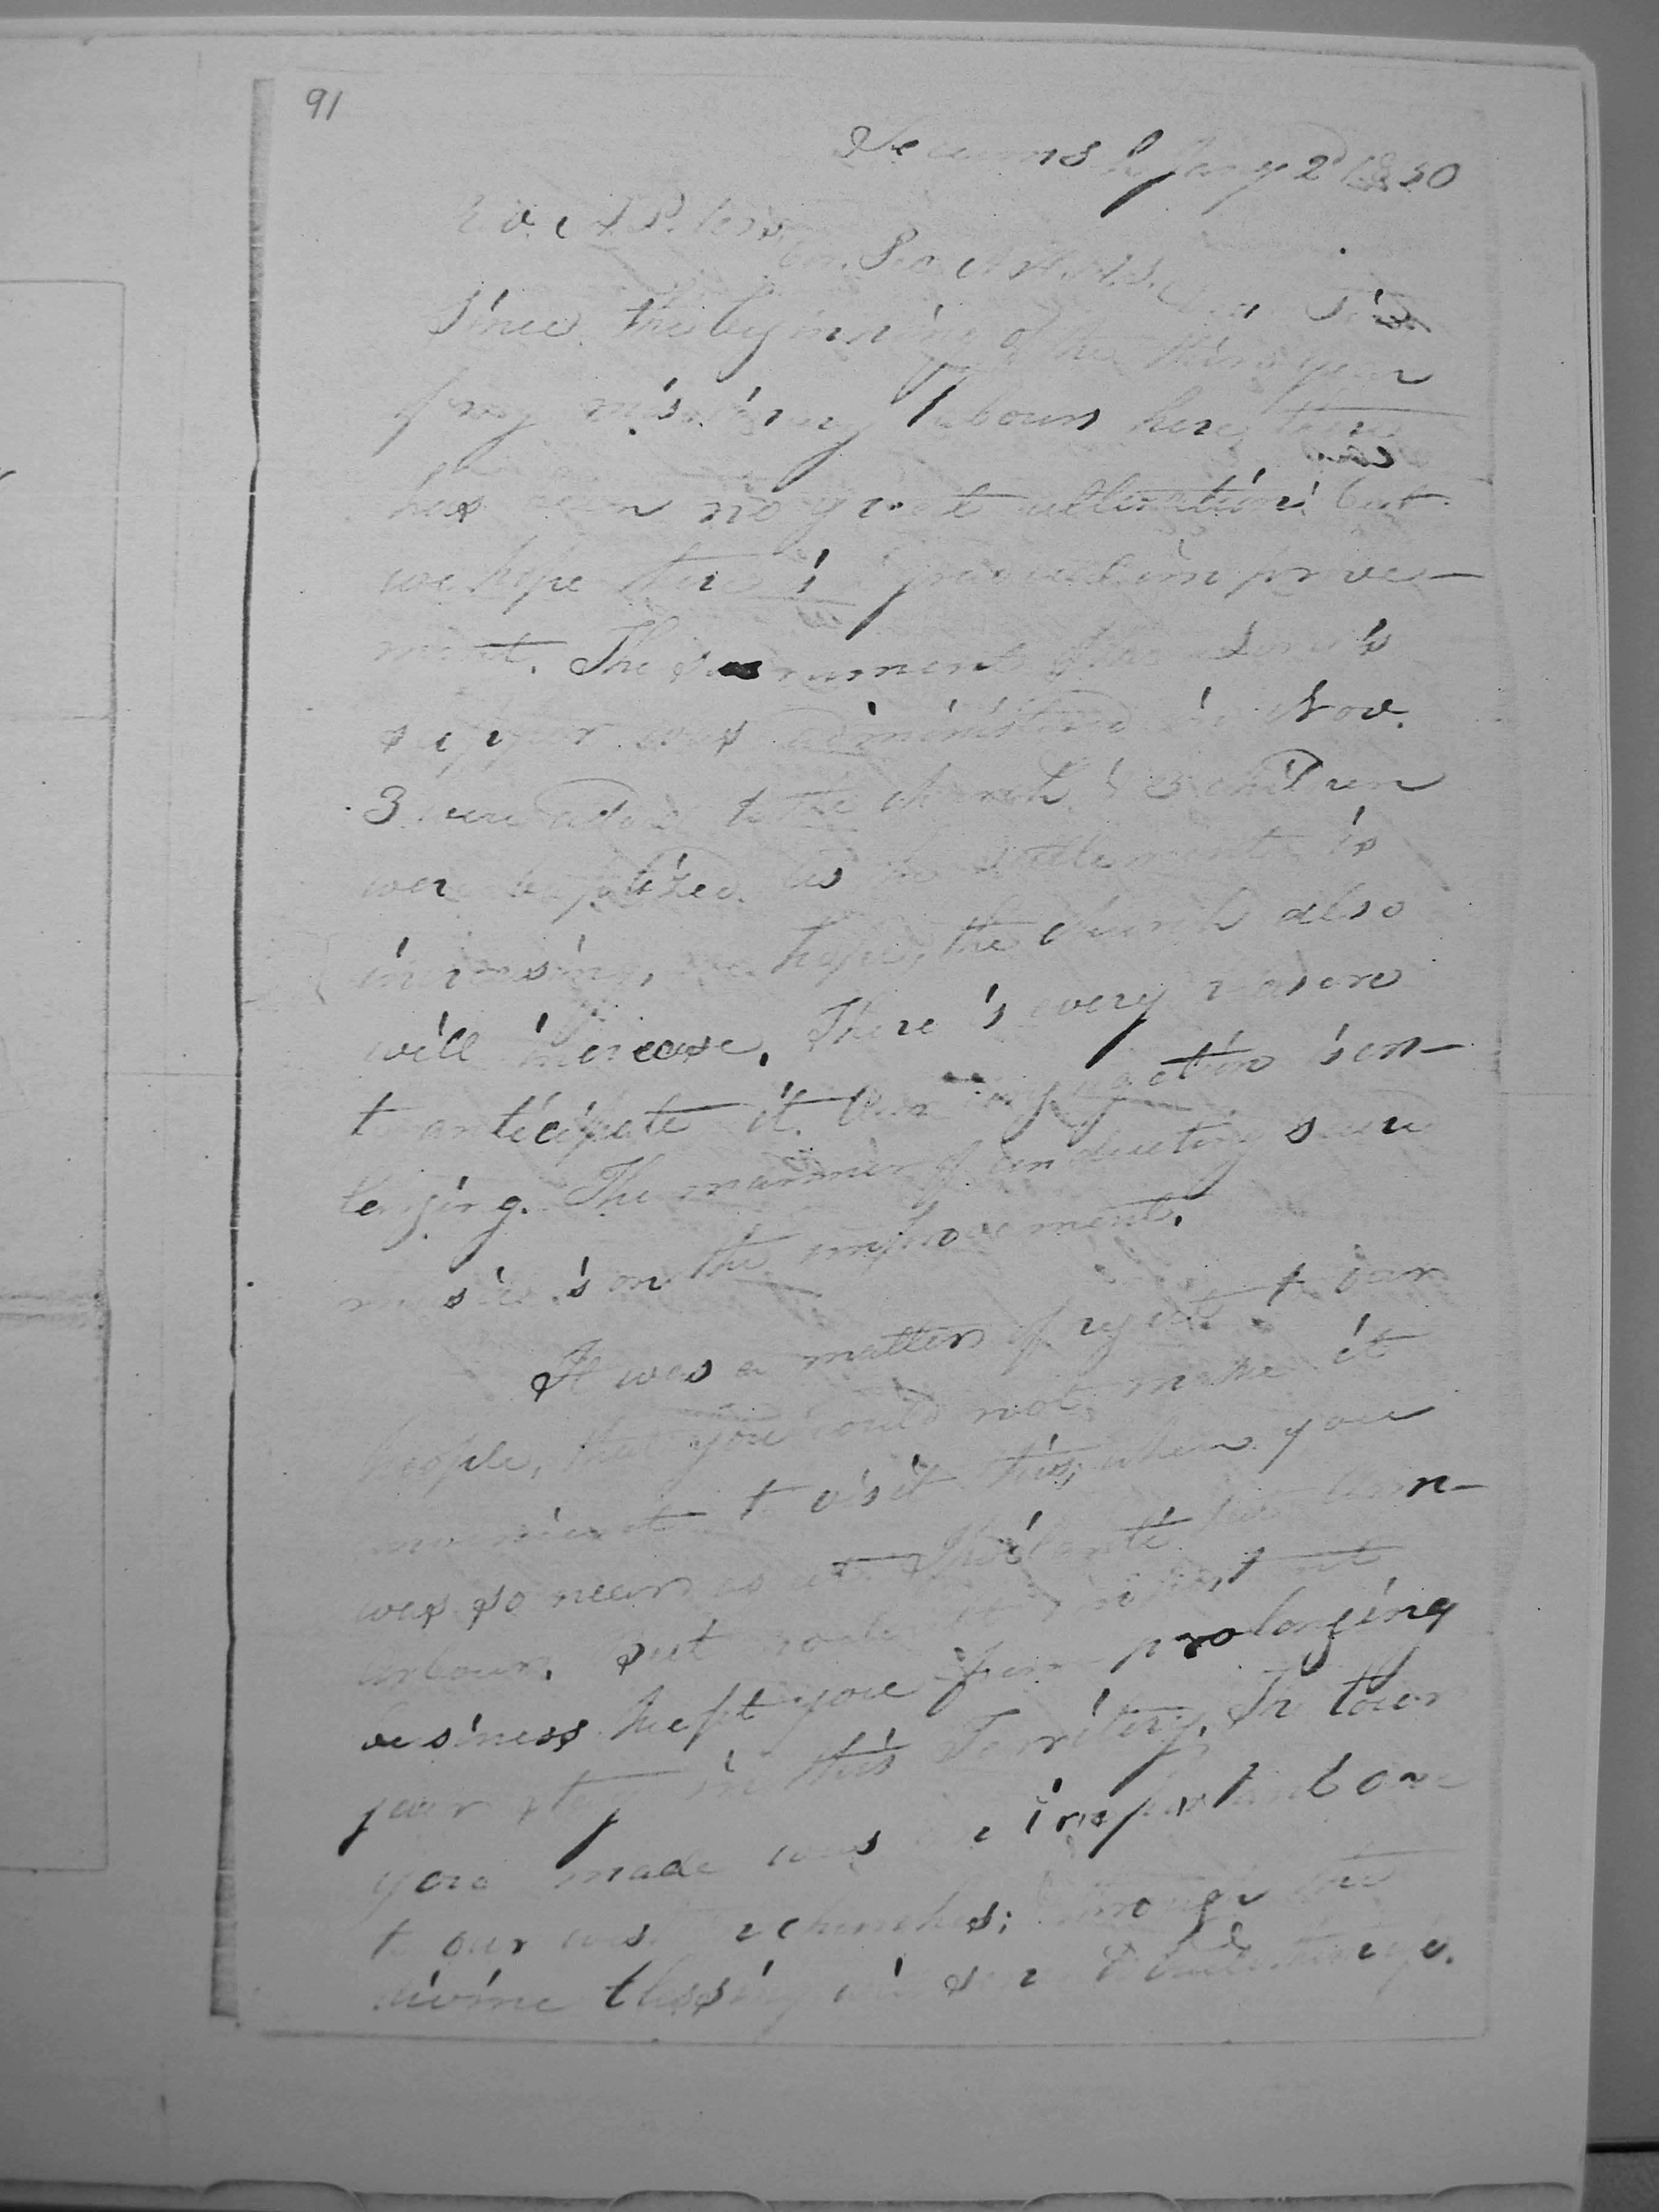 91
Tecumseh Jany 2d 1830
Rev. A. Peters,
Cor. Sec. A. H. M. S. Dear Sir
Since the beginning of the third year
of my missionary labours here, there
has been no great alteration; but
we hope there is gradual improve-
ment. The sacrament of the Lord's
supper was administered in Nov.
3 were added to the church & 3 children
were baptized. As the settlement is
increasing, we hope, the church also
will increase. There is every reason
to anticipate it. Our congregation is en-
larging. The manner of conducting sacred
music is on the improvement.
It was a matter of regret to our
people, that you could not make it
convenient to visit this, when you
was so near as at Ypsilanti & Ann-
arbour. But no doubt important
business kept you from prolonging
your stay in this Territory. The tour
you made was an important one
to our western churches; through the
divine blessing will